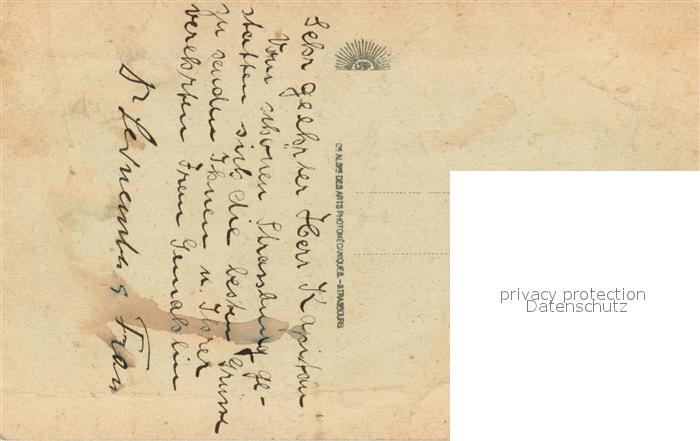 Sehr geehrter Herr Kapitän
Vom schönen Strassburg ge-
statten sich die besten Grüsse
zu senden Ihnen u. Ihrer
verehrten Frau Gemahlin
Dr & Frau
CIE ALSNE DES ARTS PHOTOMÉCANIQUES. — STRASBOURG
privacy protection
Datenschutz